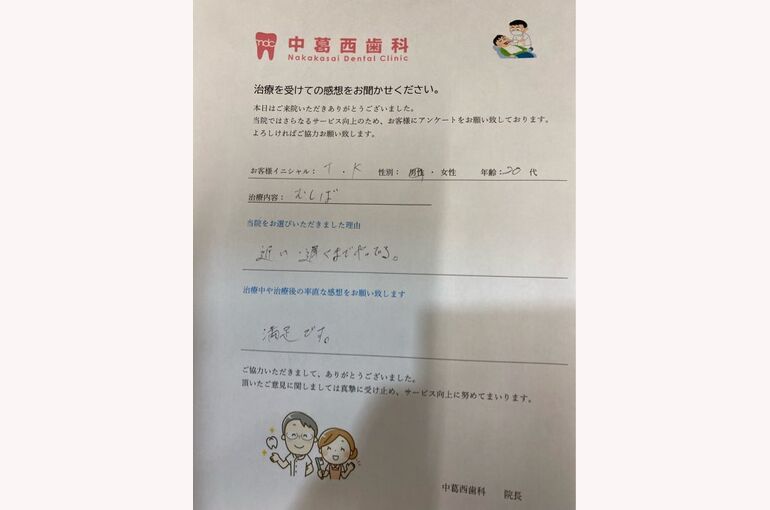 ndc 中葛西歯科
Nakakasai Dental Clinic
治療を受けての感想をお聞かせください。
本日はご来院いただきありがとうございました。
当院ではさらなるサービス向上のため、お客様にアンケートをお願い致しております。
よろしければご協力お願い致します。
お客様イニシャル: T . K 性別: 男性 ・ 女性 年齢: 20 代
治療内容: むしば
当院をお選びいただきました理由
近い・遅くまでやってる。
治療中や治療後の率直な感想をお願い致します
満足です。
ご協力いただきまして、ありがとうございました。
頂いたご意見に関しましては真摯に受け止め、サービス向上に努めてまいります。
中葛西歯科 院長